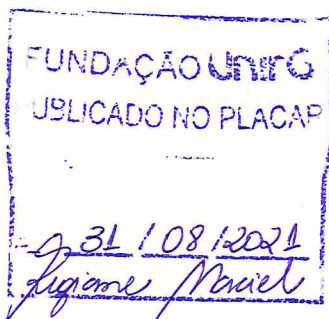 FUNDAÇÃO UnirG
UBLICADO NO PLACAR
31 / 08 /2021
Maciel